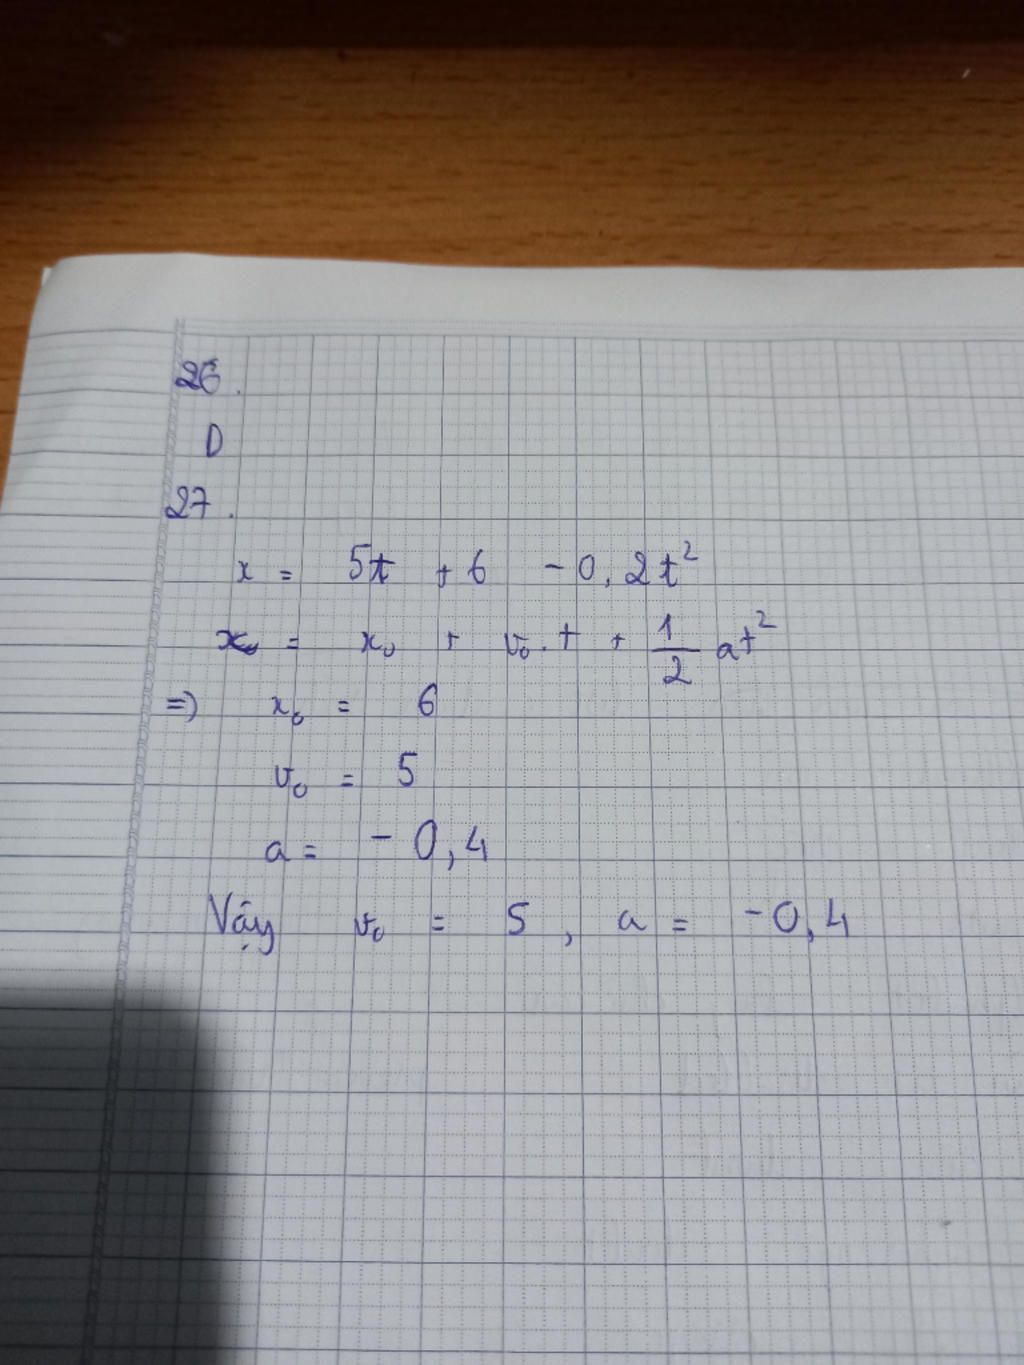 26.
D
27.
x = 5t + 6 - 0,2t²
x₀ = x₀ + v₀.t + 1/2 at²
=) x₀ = 6
v₀ = 5
a = - 0,4
Vậy v₀ = 5, a = -0,4